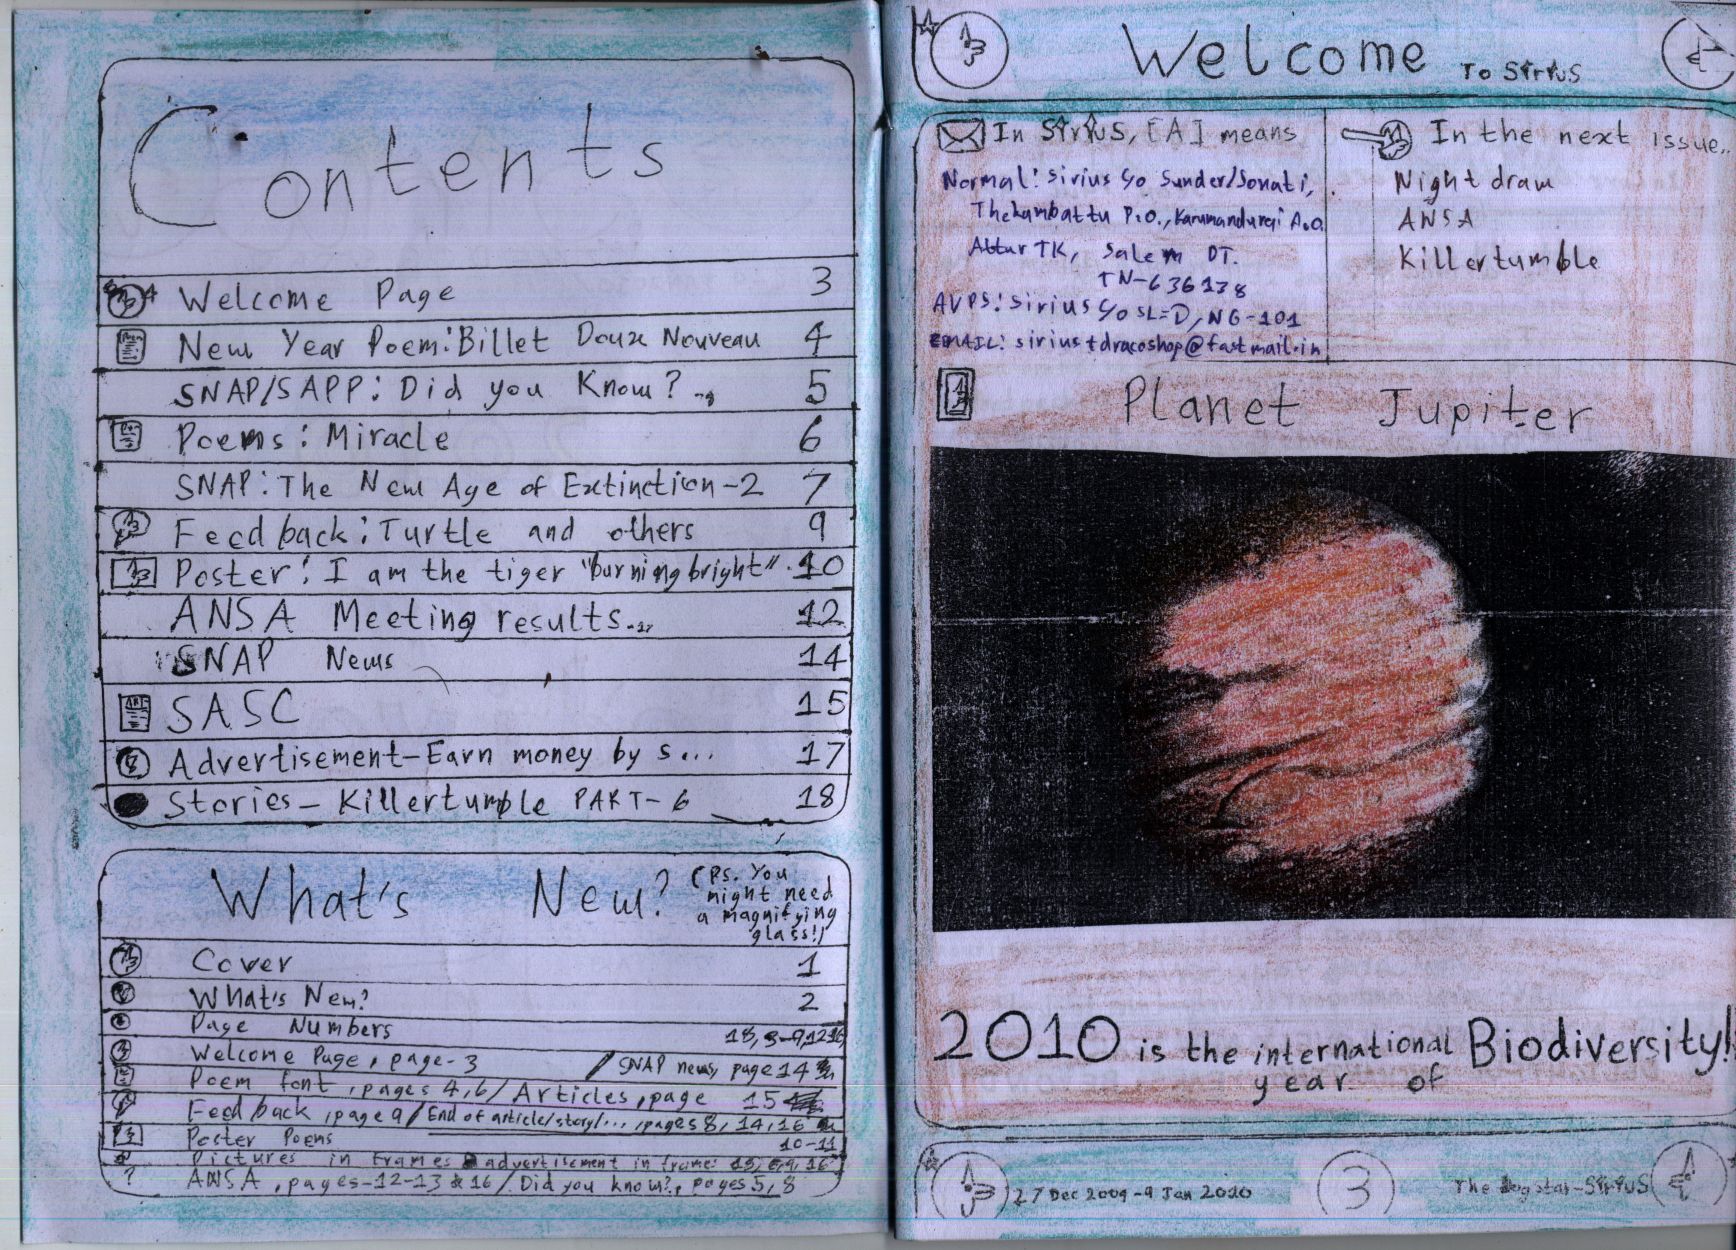 Contents
Welcome Page 3
New Year Poem: Billet Doux Nouveau 4
SNAP/SAPP: Did you Know? .. 5
Poems: Miracle 6
SNAP: The New Age of Extinction-2 7
Feedback: Turtle and others 9
Poster: I am the tiger "burning bright". 10
ANSA Meeting results... 12
SNAP News 14
SASC 15
Advertisement-Earn money by s... 17
Stories- Killertumble PART-6 18
What's New?
(Ps. You
might need
a magnifying
glass!)
Cover 1
What's New? 2
Page Numbers 18, 3-9,12,16
Welcome Page, page-3 / SNAP news, page 14
Poem font, pages 4,6/ Articles, page 15
Feedback, page 9/ End of article/story/..., pages 8, 14, 16
Poster Poems 10-11
Pictures in frames & advertisement in frame:
ANSA, pages-12-13 & 16/ Did you know?, pages 5, 8
Welcome To Sirius
In Sirius, [A] means
Normal: Sirius c/o Sunder/Sonati,
Thekambattu P.O., Karumandurai A.O.
Attur TK, Salem DT.
TN-636138
AVPS: Sirius c/o SL=D, NG-101
EMAIL: sirius+dracoshop@fastmail.in
In the next issue..
Night draw
ANSA
Killertumble
Planet Jupiter
2010 is the international year of Biodiversity!
27 Dec 2009-9 Jan 2010
3
The Dogstar-Sirius